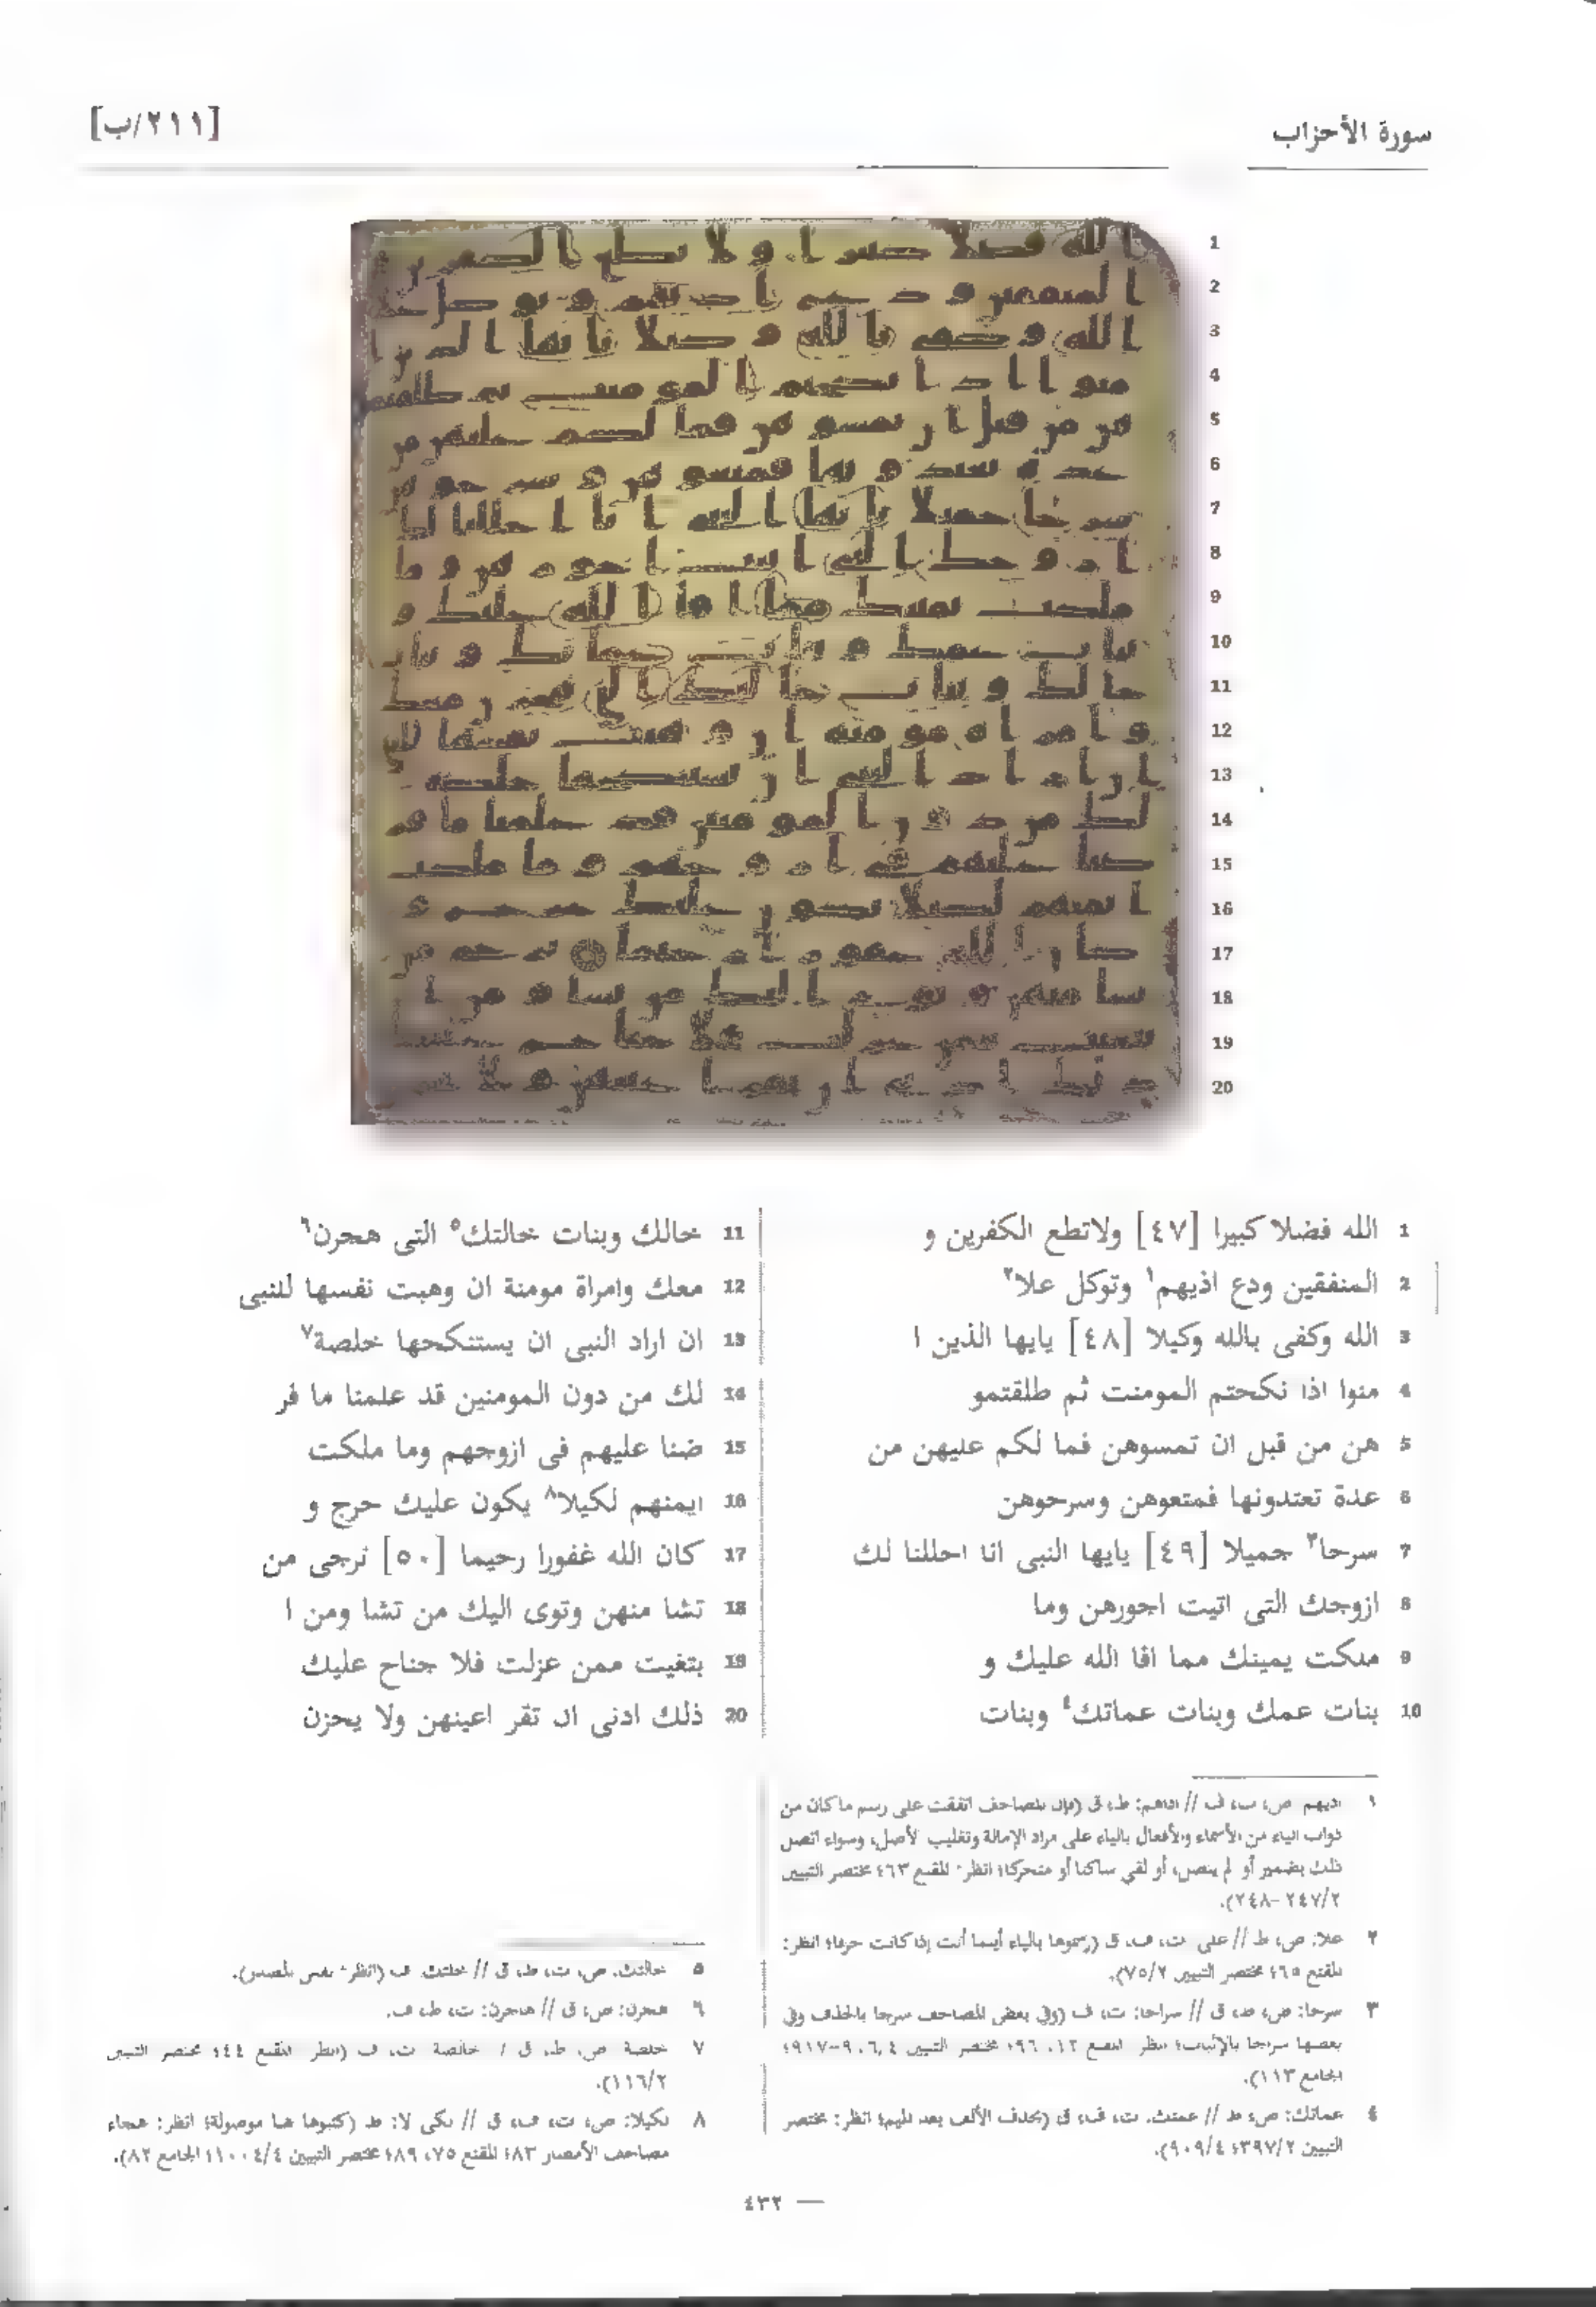 سورة الأحزاب
[٢١١/ب]
1 الله فضلا كبيرا [٤٧] ولاتطع الكفرين و
2 المنفقين ودع اذيهم١ وتوكل علا٢
3 الله وكفى بالله وكيلا [٤٨] يايها الذين ا
4 منوا اذا نكحتم المومنت ثم طلقتمو
5 هن من قبل ان تمسوهن فما لكم عليهن من
6 عدة تعتدونها فمتعوهن وسرحوهن
7 سرحا٣ جميلا [٤٩] يايها النبى انا احللنا لك
8 ازوجك التى اتيت اجورهن وما
9 ملكت يمينك مما افا الله عليك و
10 بنات عمك وبنات عماتك٤ وبنات
11 خالك وبنات خالتك٥ التى هجرن٦
12 معك وامراة مومنة ان وهبت نفسها للنبى
13 ان اراد النبى ان يستنكحها خلصة٧
14 لك من دون المومنين قد علمنا ما فر
15 ضنا عليهم فى ازوجهم وما ملكت
16 ايمنهم لكيلا٨ يكون عليك حرج و
17 كان الله غفورا رحيما [٥٠] ترجى من
18 تشا منهن وتوى اليك من تشا ومن ا
19 بتغيت ممن عزلت فلا جناح عليك
20 ذلك ادنى ان تقر اعينهن ولا يحزن
١ اذيهم: ص، ت، ف // اذاهم: ط، ق (فإن المصاحف اتفقت على رسم ما كان من
ذوات الياء من الأسماء والأفعال بالياء على مراد الإمالة وتغليب الأصل، وسواء اتصل
ذلك بضمير أو لم يتصل، أو لقي ساكنا أو متحركا؛ انظر: المقنع ٤٦٣ مختصر التبيين
٢/٢٤٧-٢٤٨).
٢ علا: ص، ط // على: ت، ف، ق (رسموها بالياء أينما أتت إذا كانت حرفا؛ انظر:
المقنع ٤٦٥ مختصر التبيين ٢/٧٥).
٣ سرحا: ص، ط، ق // سراحا: ت، ف (وفي بعض المصاحف سرجا بالحذف وفي
بعضها سراجا بالإثبات؛ انظر: المقنع ١٢، ٩٦؛
الجامع ١١٣).
٤ عماتك: ص، ط // عمتك: ت، ف، ق (بحذف الألف بعد الميم؛ انظر: مختصر
التبيين ٢/٣٩٧؛ ٤/٩٠٩).
٥ خالتك: ص، ت، ط، ق // خلتك: ف (انظر: نفس المصدر).
٦ هجرن: ص، ق // هاجرن: ت، ط، ف.
٧ خلصة: ص، ط، ق // خالصة: ت، ف (انظر: المقنع ٤٤؛ مختصر التبيين
٢/١١٦).
٨ لكيلا: ص، ت، ف، ق // لكى لا: ط (كتبوها هنا موصولة؛ انظر: هجاء
مصاحف الأمصار ٨٣؛ المقنع ٧٥، ٨٩؛ مختصر التبيين ٤/١٠٠٤؛ الجامع ٨٢).
— ٤٣٢